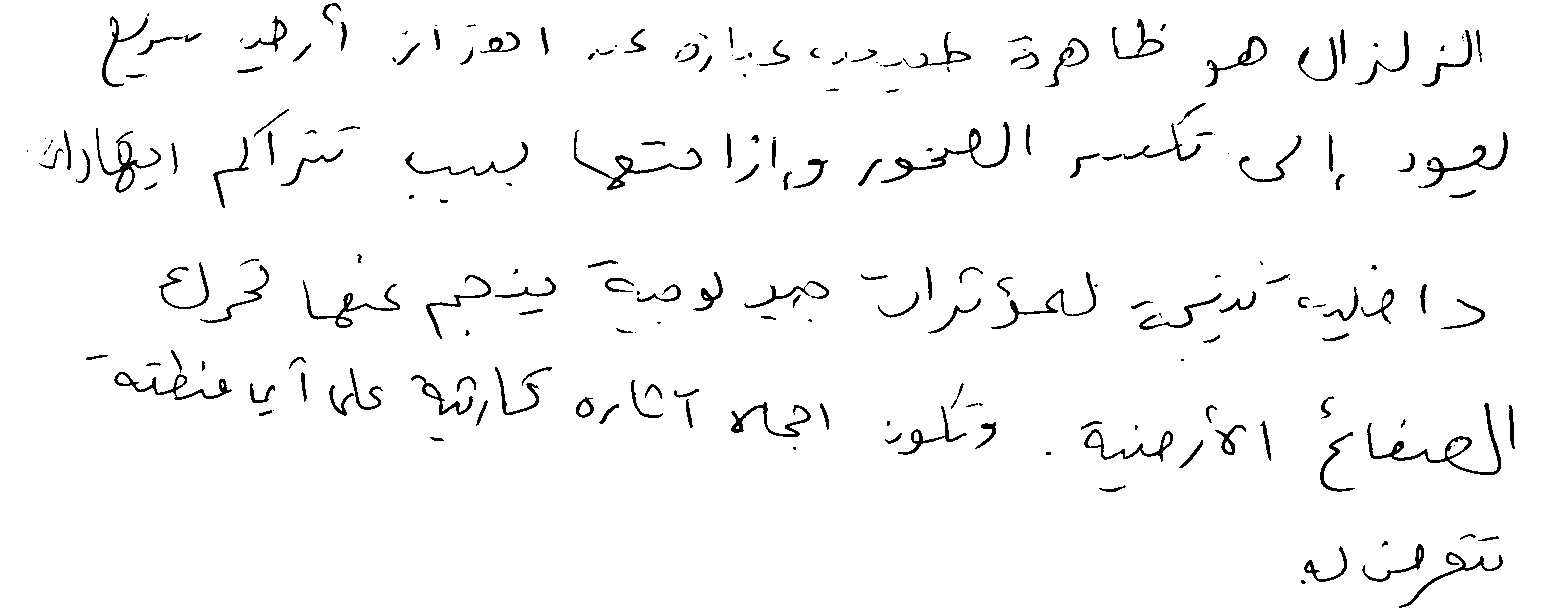 الزلزال هو ظاهرة طبيعية عبارة عن اهتزاز أرضي سريع
يعود إلى تكسر الصخور وإزاحتها بسبب تراكم اجهادات
داخلية نتيجة لمؤثرات جيولوجية ينجم عنها تحرك
الصفائح الأرضية. وتكون آثاره كارثية على أي منطقة
تتعرض له.